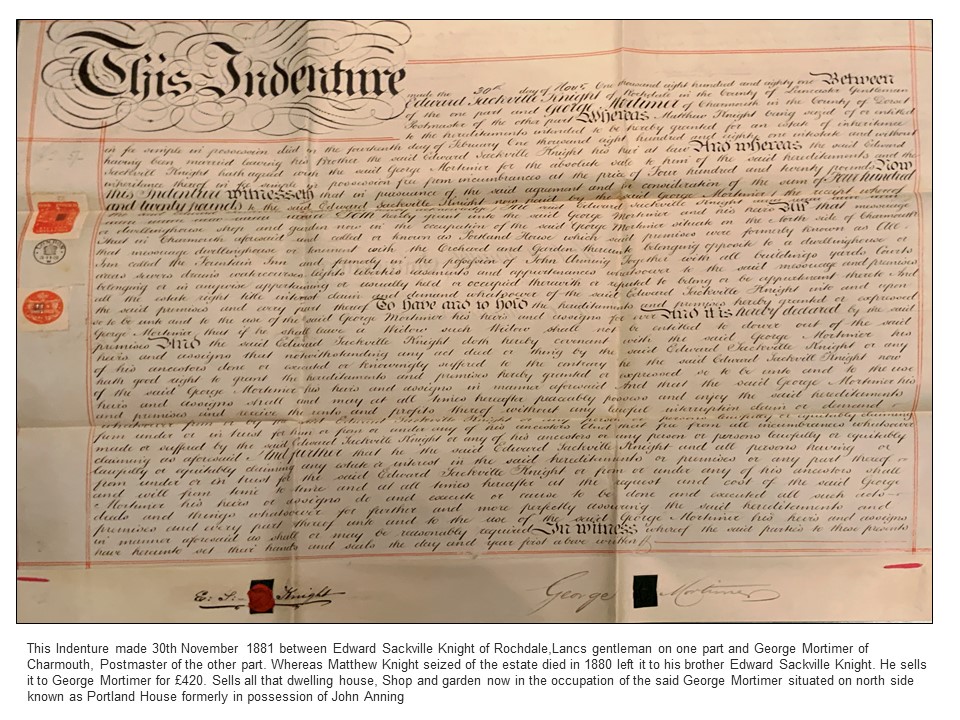 This Indenture
made the 30th day of Novr. One thousand eight hundred and eighty one Between
Edward Sackville Knight of Rochdale in the County of Lancaster Gentleman
of the one part and George Mortimer of Charmouth in the County of Dorset
Postmaster of the other part Whereas Matthew Knight being seized of or entitled
to the hereditaments intended to be hereby granted for an estate of inheritance
in fee simple in possession died in the day of February One thousand eight hundred and eighty one intestate and without
having been married leaving his Brother the said Edward Sackville Knight his heir at law And whereas the said Edward
Sackville Knight hath agreed with the said George Mortimer for the absolute sale to him of the said hereditaments and the
inheritance thereof in fee simple in possession free from incumbrances at the price of Four hundred and twenty pounds Now
this Indenture witnesseth that in pursuance of the said agreement and in consideration of the sum of Four hundred
and twenty pounds to the said Edward Sackville Knight now paid by the said George Mortimer the receipt whereof
the said Edward Sackville Knight hereby grant unto the said George Mortimer and his heirs All that messuage
or dwellinghouse shop and garden now in the occupation of the said George Mortimer situate on the North side of Charmouth
Street in Charmouth aforesaid and called or known as Portland House which said premises were formerly known as All
that messuage dwellinghouse or tenement with the Orchard and Garden thereunto belonging opposite to a dwellinghouse or
Inn called the Fountain Inn and formerly in the possession of John Anning Together with all buildings yards Courts
areas sewers drains watercourses lights liberties easements and appurtenances whatsoever to the said messuage and premises
belonging or in anywise appertaining or usually held or occupied therewith or reputed to belong or be appurtenant thereto And
all the estate right title interest claim and demand whatsoever of the said Edward Sackville Knight into and upon
the said premises and every part thereof To have and to hold the hereditaments and premises hereby granted or expressed
so to be unto and to the use of the said George Mortimer his heirs and assigns for ever And it is hereby declared by the said
George Mortimer that if he shall leave a Widow such Widow shall not be entitled to dower out of the said
premises And the said Edward Sackville Knight doth hereby covenant with the said George Mortimer his
heirs and assigns that notwithstanding any act deed or thing by the said Edward Sackville Knight or any
of his ancestors done or executed or knowingly suffered to the contrary he the said Edward Sackvill Knight now
hath good right to grant the hereditaments and premises hereby granted or expressed so to be unto and to the use
of the said George Mortimer his heirs and assigns in manner aforesaid And that the said George Mortimer his
heirs and assigns shall and may at all times hereafter peaceably possess and enjoy the said hereditaments
and premises and receive the rents and profits thereof without any lawful interruption claim or demand
whatsoever from or by the said Edward Sackville Knight or any person or persons lawfully or equitably claiming
from under or in trust for him or from or under any of his ancestors And that free from all incumbrances whatsoever
made or suffered by the said Edward Sackville Knight or any of his ancestors or any person or persons lawfully or equitably
claiming as aforesaid And further that he the said Edward Sackville Knight and all persons having or
lawfully or equitably claiming any estate or interest in the said hereditaments or premises or any part thereof
from under or in trust for the said Edward Sackville Knight or from or under any of his ancestors shall
and will from time to time and at all times hereafter at the request and cost of the said George
Mortimer his heirs or assigns do and execute or cause to be done and executed all such acts
deeds and things whatsoever for further and more perfectly assuring the said hereditaments and
premises and every part thereof unto and to the use of the said George Mortimer his heirs and assigns
in manner aforesaid as shall or may be reasonably required In witness whereof the said parties to these presents
have hereunto set their hands and seals the day and year first above written
E. S. Knight
George Mortimer
This Indenture made 30th November 1881 between Edward Sackville Knight of Rochdale,Lancs gentleman on one part and George Mortimer of
Charmouth, Postmaster of the other part. Whereas Matthew Knight seized of the estate died in 1880 left it to his brother Edward Sackville Knight. He sells
it to George Mortimer for £420. Sells all that dwelling house, Shop and garden now in the occupation of the said George Mortimer situated on north side
known as Portland House formerly in possession of John Anning